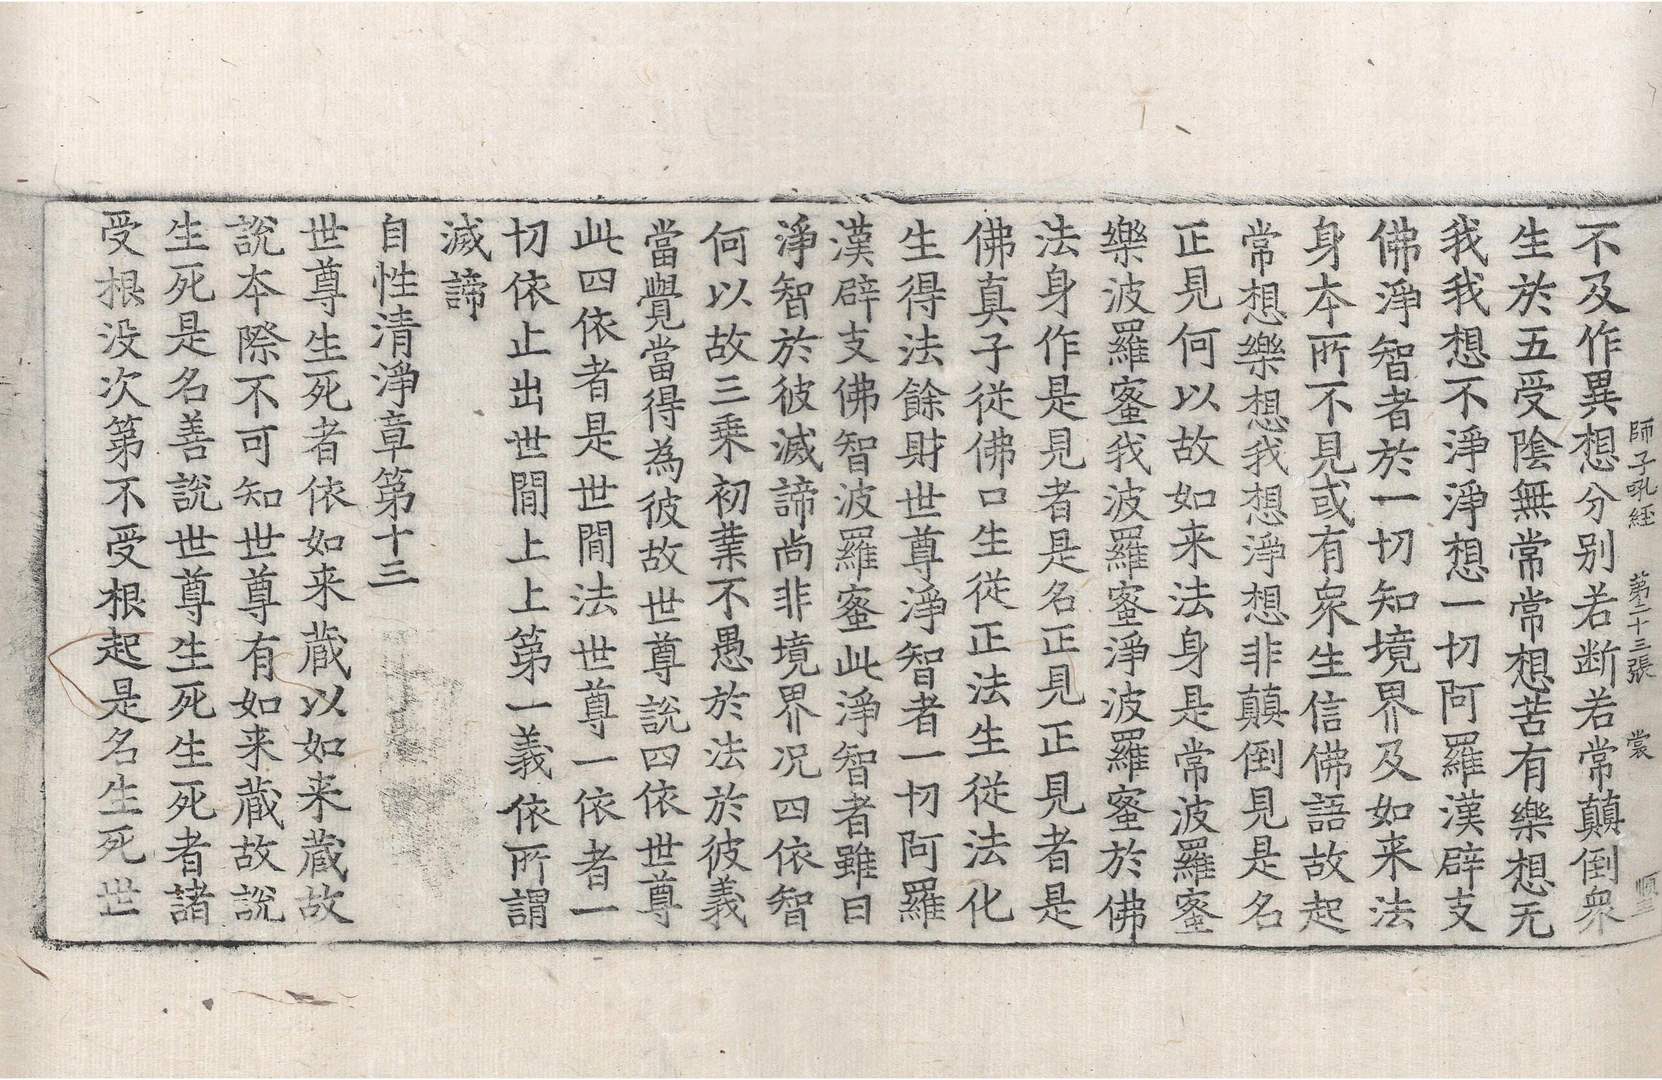 師子吼経　第二十三張　裳
不及作異想分别若断若常顛倒衆
生於五受陰無常常想苦有樂想无
我我想不淨淨想一切阿羅漢辟支
佛淨智者於一切知境界及如来法
身本所不見或有衆生信佛語故起
常想樂想我想淨想非顛倒見是名
正見何以故如来法身是常波羅蜜
樂波羅蜜我波羅蜜淨波羅蜜於佛
法身作是見者是名正見正見者是
佛真子従佛口生従正法生従法化
生得法餘財世尊淨智者一切阿羅
漢辟支佛智波羅蜜此淨智者雖曰
淨智於彼滅諦尚非境界況四依智
何以故三乗初業不愚於法於彼義
當覺當得為彼故世尊說四依世尊
此四依者是世間法世尊一依者一
切依止出世間上上第一義依所謂
滅諦
自性清淨章第十三
世尊生死者依如来蔵以如来蔵故
說本際不可知世尊有如来蔵故說
生死是名善說世尊生死生死者諸
受根没次第不受根起是名生死世